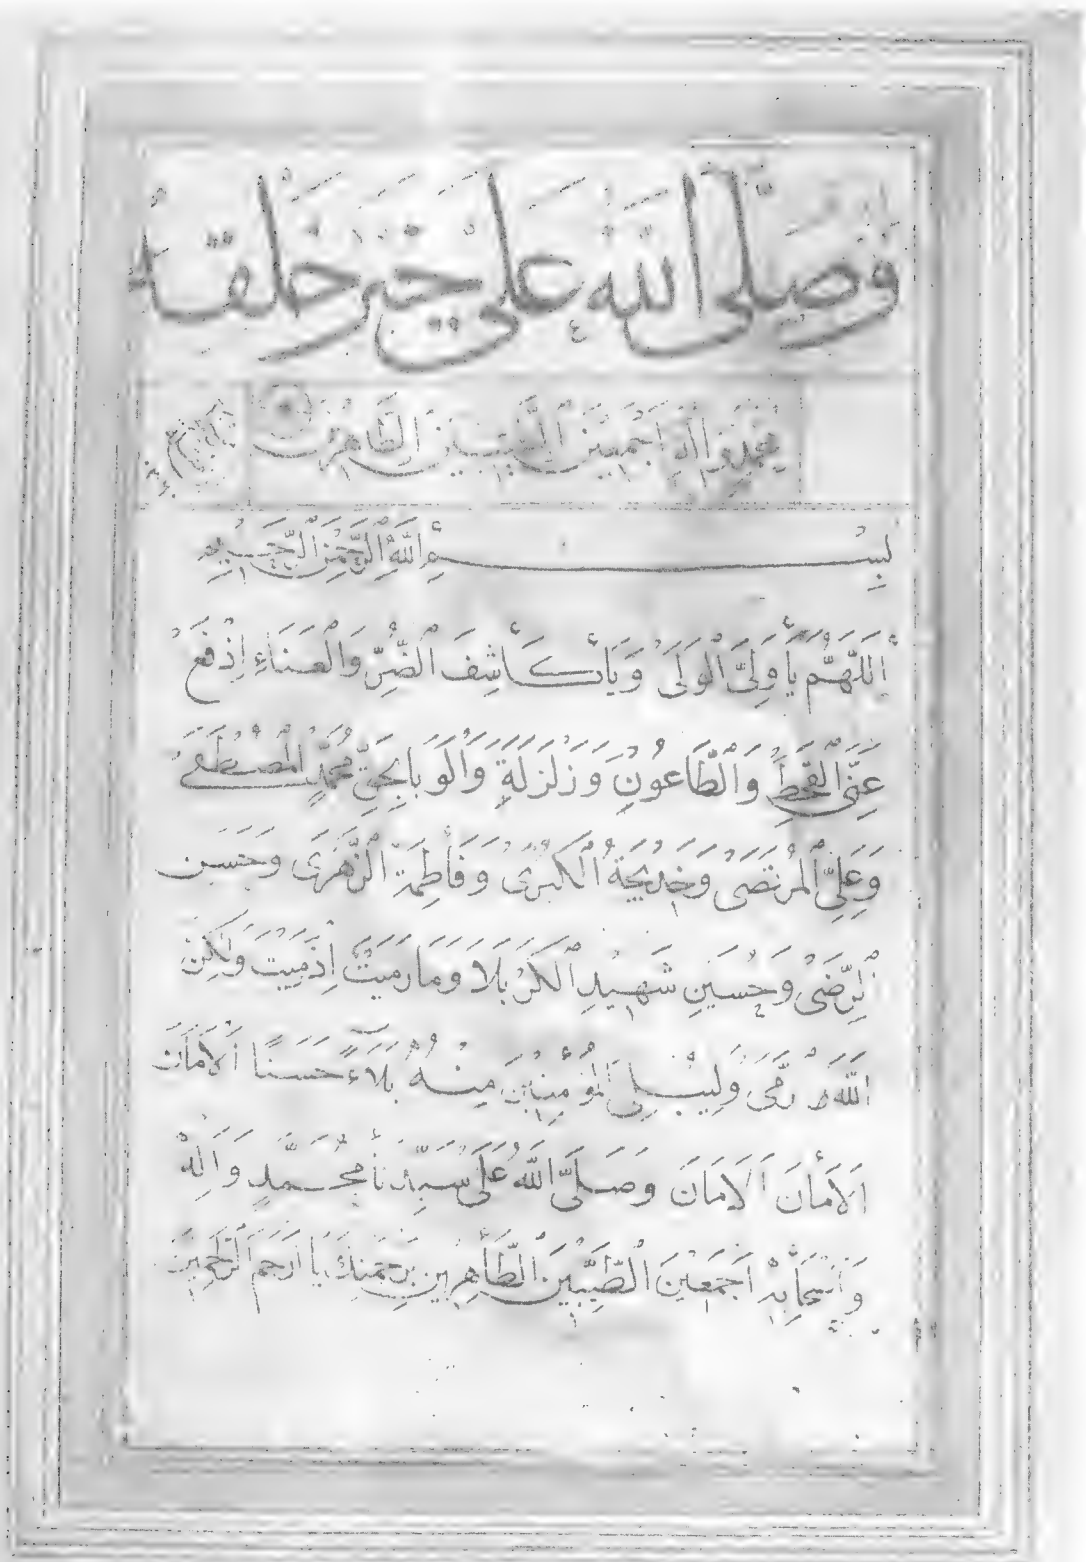 فَصَلَّى اللهُ عَلَى خَيْرِ خَلْقِهِ
مُحَمَّدٍ وَاٰلِهِ اَجْمَعِينَ الطَّيِّبِينَ الطَّاهِرِينَ
بِسْمِ اللّٰهِ الرَّحْمٰنِ الرَّحِيمِ
اَللّٰهُمَّ يَا وَلِىَّ الْوَلَى وَيَا كَاشِفَ الضُّرِّ وَالْعَنَاءِ اِدْفَعْ
عَنِّى الْقَحْطِ وَالطَّاعُونِ وَزَلْزَلَةٍ وَالْوَبَا بِحَقِّ مُحَمَّدٍ الْمُصْطَفَى
وَعَلِىِّ الْمُرْتَضَى وَخَدِيجَةُ الْكُبْرَى وَفَاطِمَةَ الزَّهْرَى وَحَسَنِ
الرِّضَى وَحُسَيْنِ شَهِيدِ الْكَرْبَلَا وَمَا رَمَيْتَ اِذْ رَمَيْتَ وَلٰكِنَّ
اللّٰهَ رَمَى وَلِيُبْلِىَ الْمُؤْمِنِينَ مِنْهُ بَلَاءً حَسَنًا اَلْاَمَانَ
اَلْاَمَانَ اَلْاَمَانَ وَصَلَّى اللّٰهُ عَلَى سَيِّدِنَا مُحَمَّدٍ وَاٰلِهِ
وَاَصْحَابِهِ اَجْمَعِينَ الطَّيِّبِينَ الطَّاهِرِينَ بِرَحْمَتِكَ يَا اَرْحَمَ الرَّاحِمِينَ